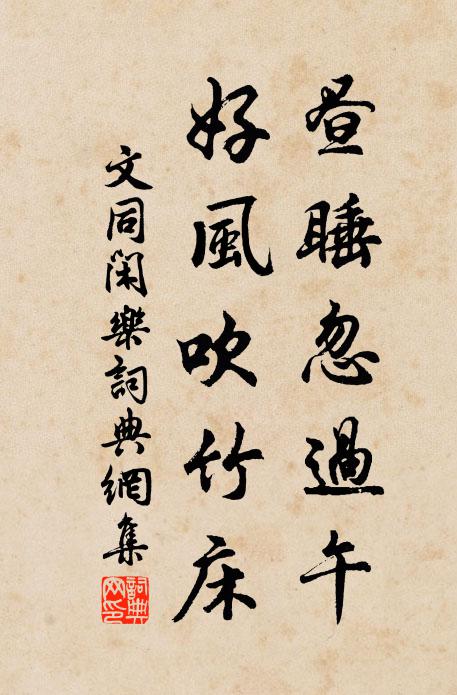 昼睡忽過午
好風吹竹床
文同閑樂詞典網集
詞典
网印